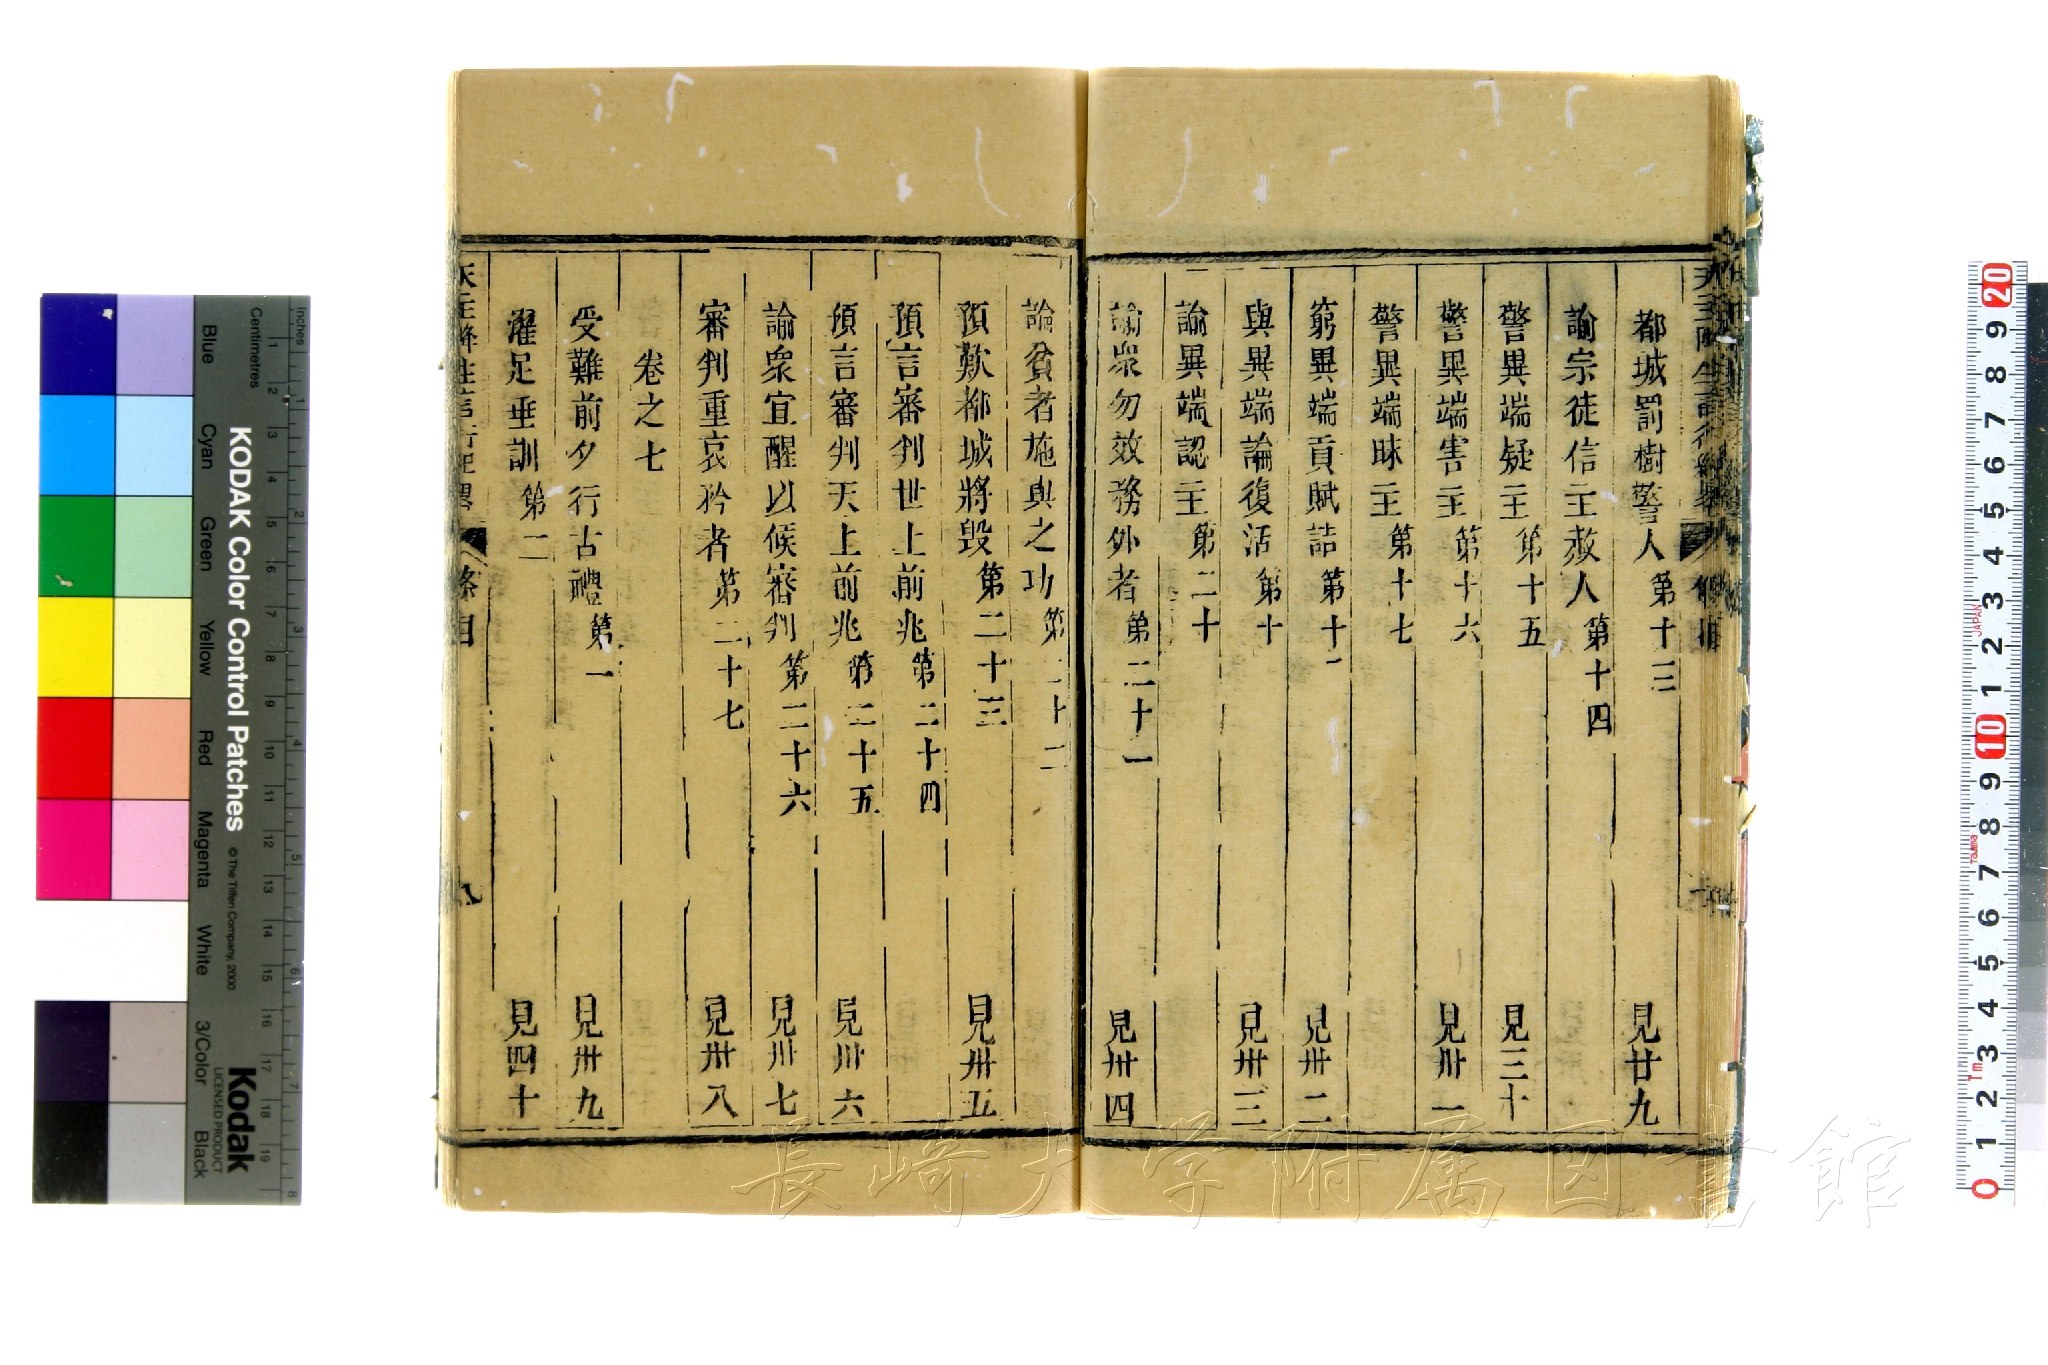 都城罰樹警人第十三 見廿九
諭宗徒信主赦人第十四
警異端疑主第十五 見三十
警異端害主第十六 見卅一
警異端昧主第十七
窮異端貢賦詰第十 見卅二
與異端論復活第十 見卅三
諭異端認主第二十
諭眾勿效務外者第二十一 見卅四
論貧者施與之功第二十二
預歎都城將毀第二十三 見卅五
預言審判世上前兆第二十四
預言審判天上前兆第二十五 見卅六
諭衆宜醒以候審判第二十六 見卅七
審判重哀矜者第二十七 見卅八
卷之七
受難前夕行古禮第一 見卅九
濯足垂訓第二 見四十
天主降生言行紀畧 條目 八
KODAK Color Control Patches
© The Tiffen Company, 2000
Kodak
LICENSED PRODUCT
Inches
Centimetres
Blue Cyan Green Yellow Red Magenta White 3/Color Black
長崎大学附属図書館
JAPAN
Tajima
1m